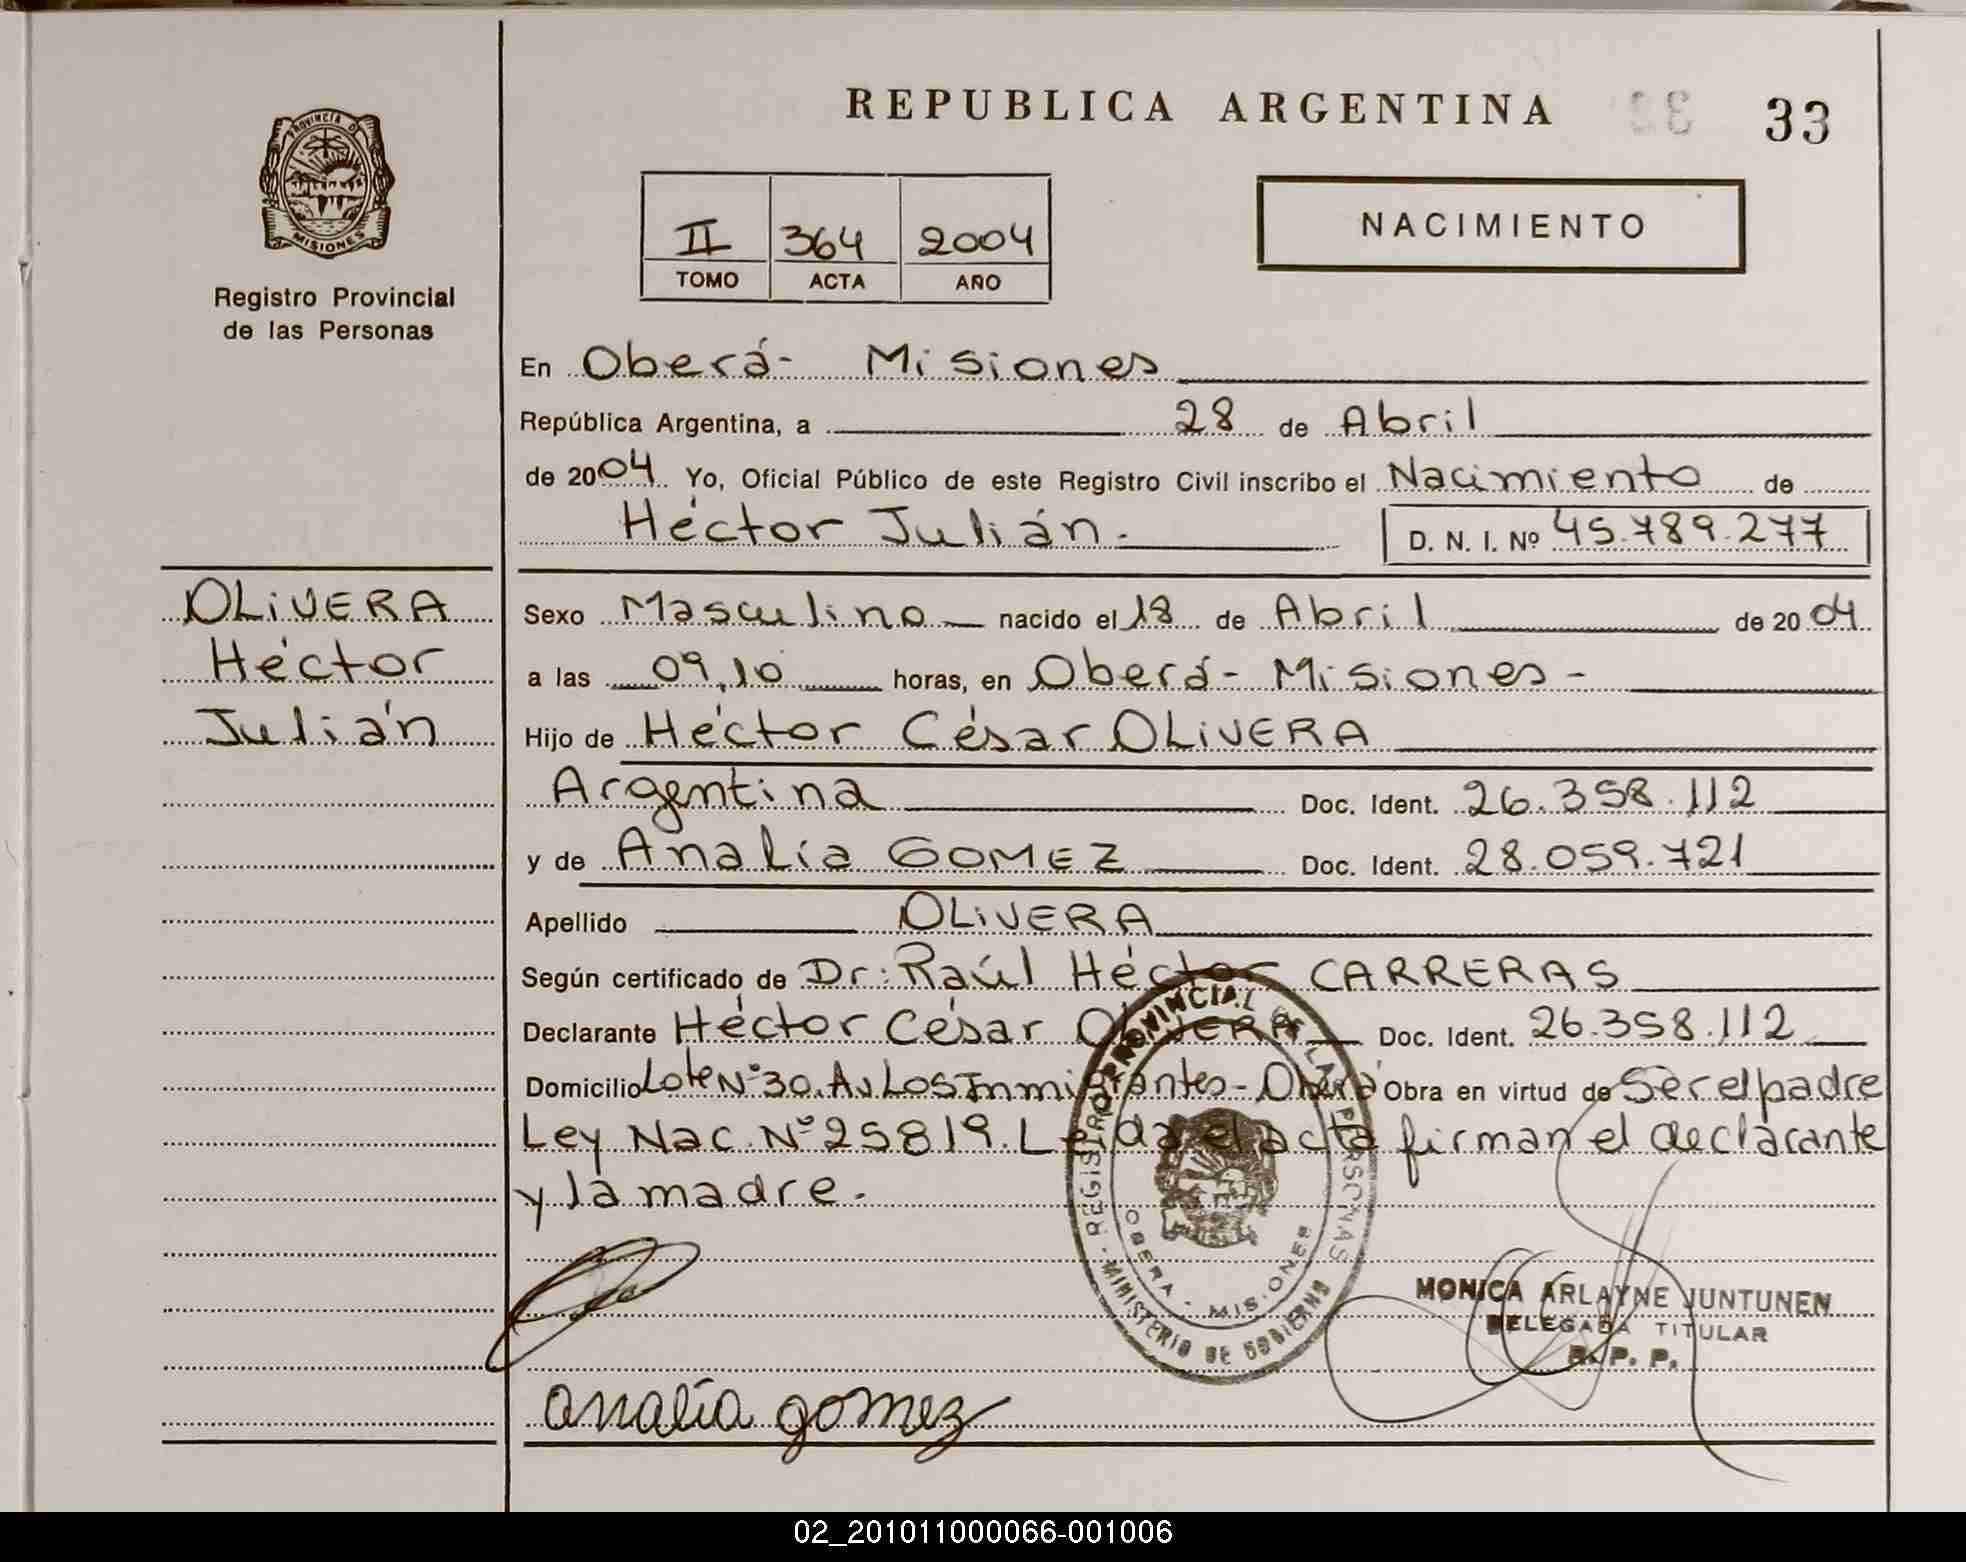 REPUBLICA ARGENTINA 33
PROVINCIA DE
MISIONES
Registro Provincial
de las Personas
II 364 2004
TOMO ACTA AÑO
NACIMIENTO
En Oberá- Misiones
República Argentina, a 28 de Abril
de 2004 Yo, Oficial Público de este Registro Civil inscribo el Nacimiento de
Héctor Julián. D. N. I. Nº 45.789.277
OLiVERA
Héctor
Julián
Sexo Masculino nacido el 18 de Abril de 2004
a las 09,10 horas, en Oberá- Misiones-
Hijo de Héctor César OLiVERA
Argentina Doc. Ident. 26.358.112
y de Analía GOMEZ Doc. Ident. 28.059.721
Apellido OLiVERA
Según certificado de Dr: Raúl Héctor CARRERAS
Declarante Héctor César OLiVERA Doc. Ident. 26.358.112
Domicilio Lote Nº 30. Av Los Inmigrantes- Oberá Obra en virtud de Ser el padre
Ley Nac. Nº 25819. Leída el acta firman el declarante
y la madre.
REGISTRO PROVINCIAL DE LAS PERSONAS
OBERA - MISIONES
MINISTERIO DE GOBIERNO
MONICA ARLAYNE JUNTUNEN
DELEGADA TITULAR
R. P. P.
analía gomez
02_201011000066-001006